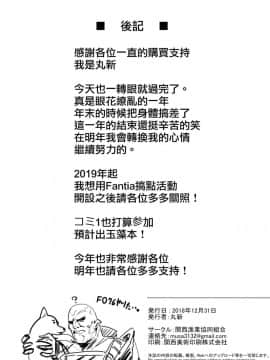 ■ 後記 ■
感謝各位一直的購買支持
我是丸新
今天也一轉眼就過完了。
真是眼花繚亂的一年
年末的時候把身體搞差了
這一年的結束還挺辛苦的笑
在明年我會轉換我的心情
繼續努力的。
2019年起
我想用Fantia搞點活動
開設之後請各位多多關照！
コミ1也打算參加
預計出玉藻本！
今年也非常感謝各位
明年也請各位多多支持！
発行日：2018年12月31日
発行者：丸新
サークル：関西漁業協同組合
連絡先：musa3132@gmail.com
印刷：関西美術印刷株式会社